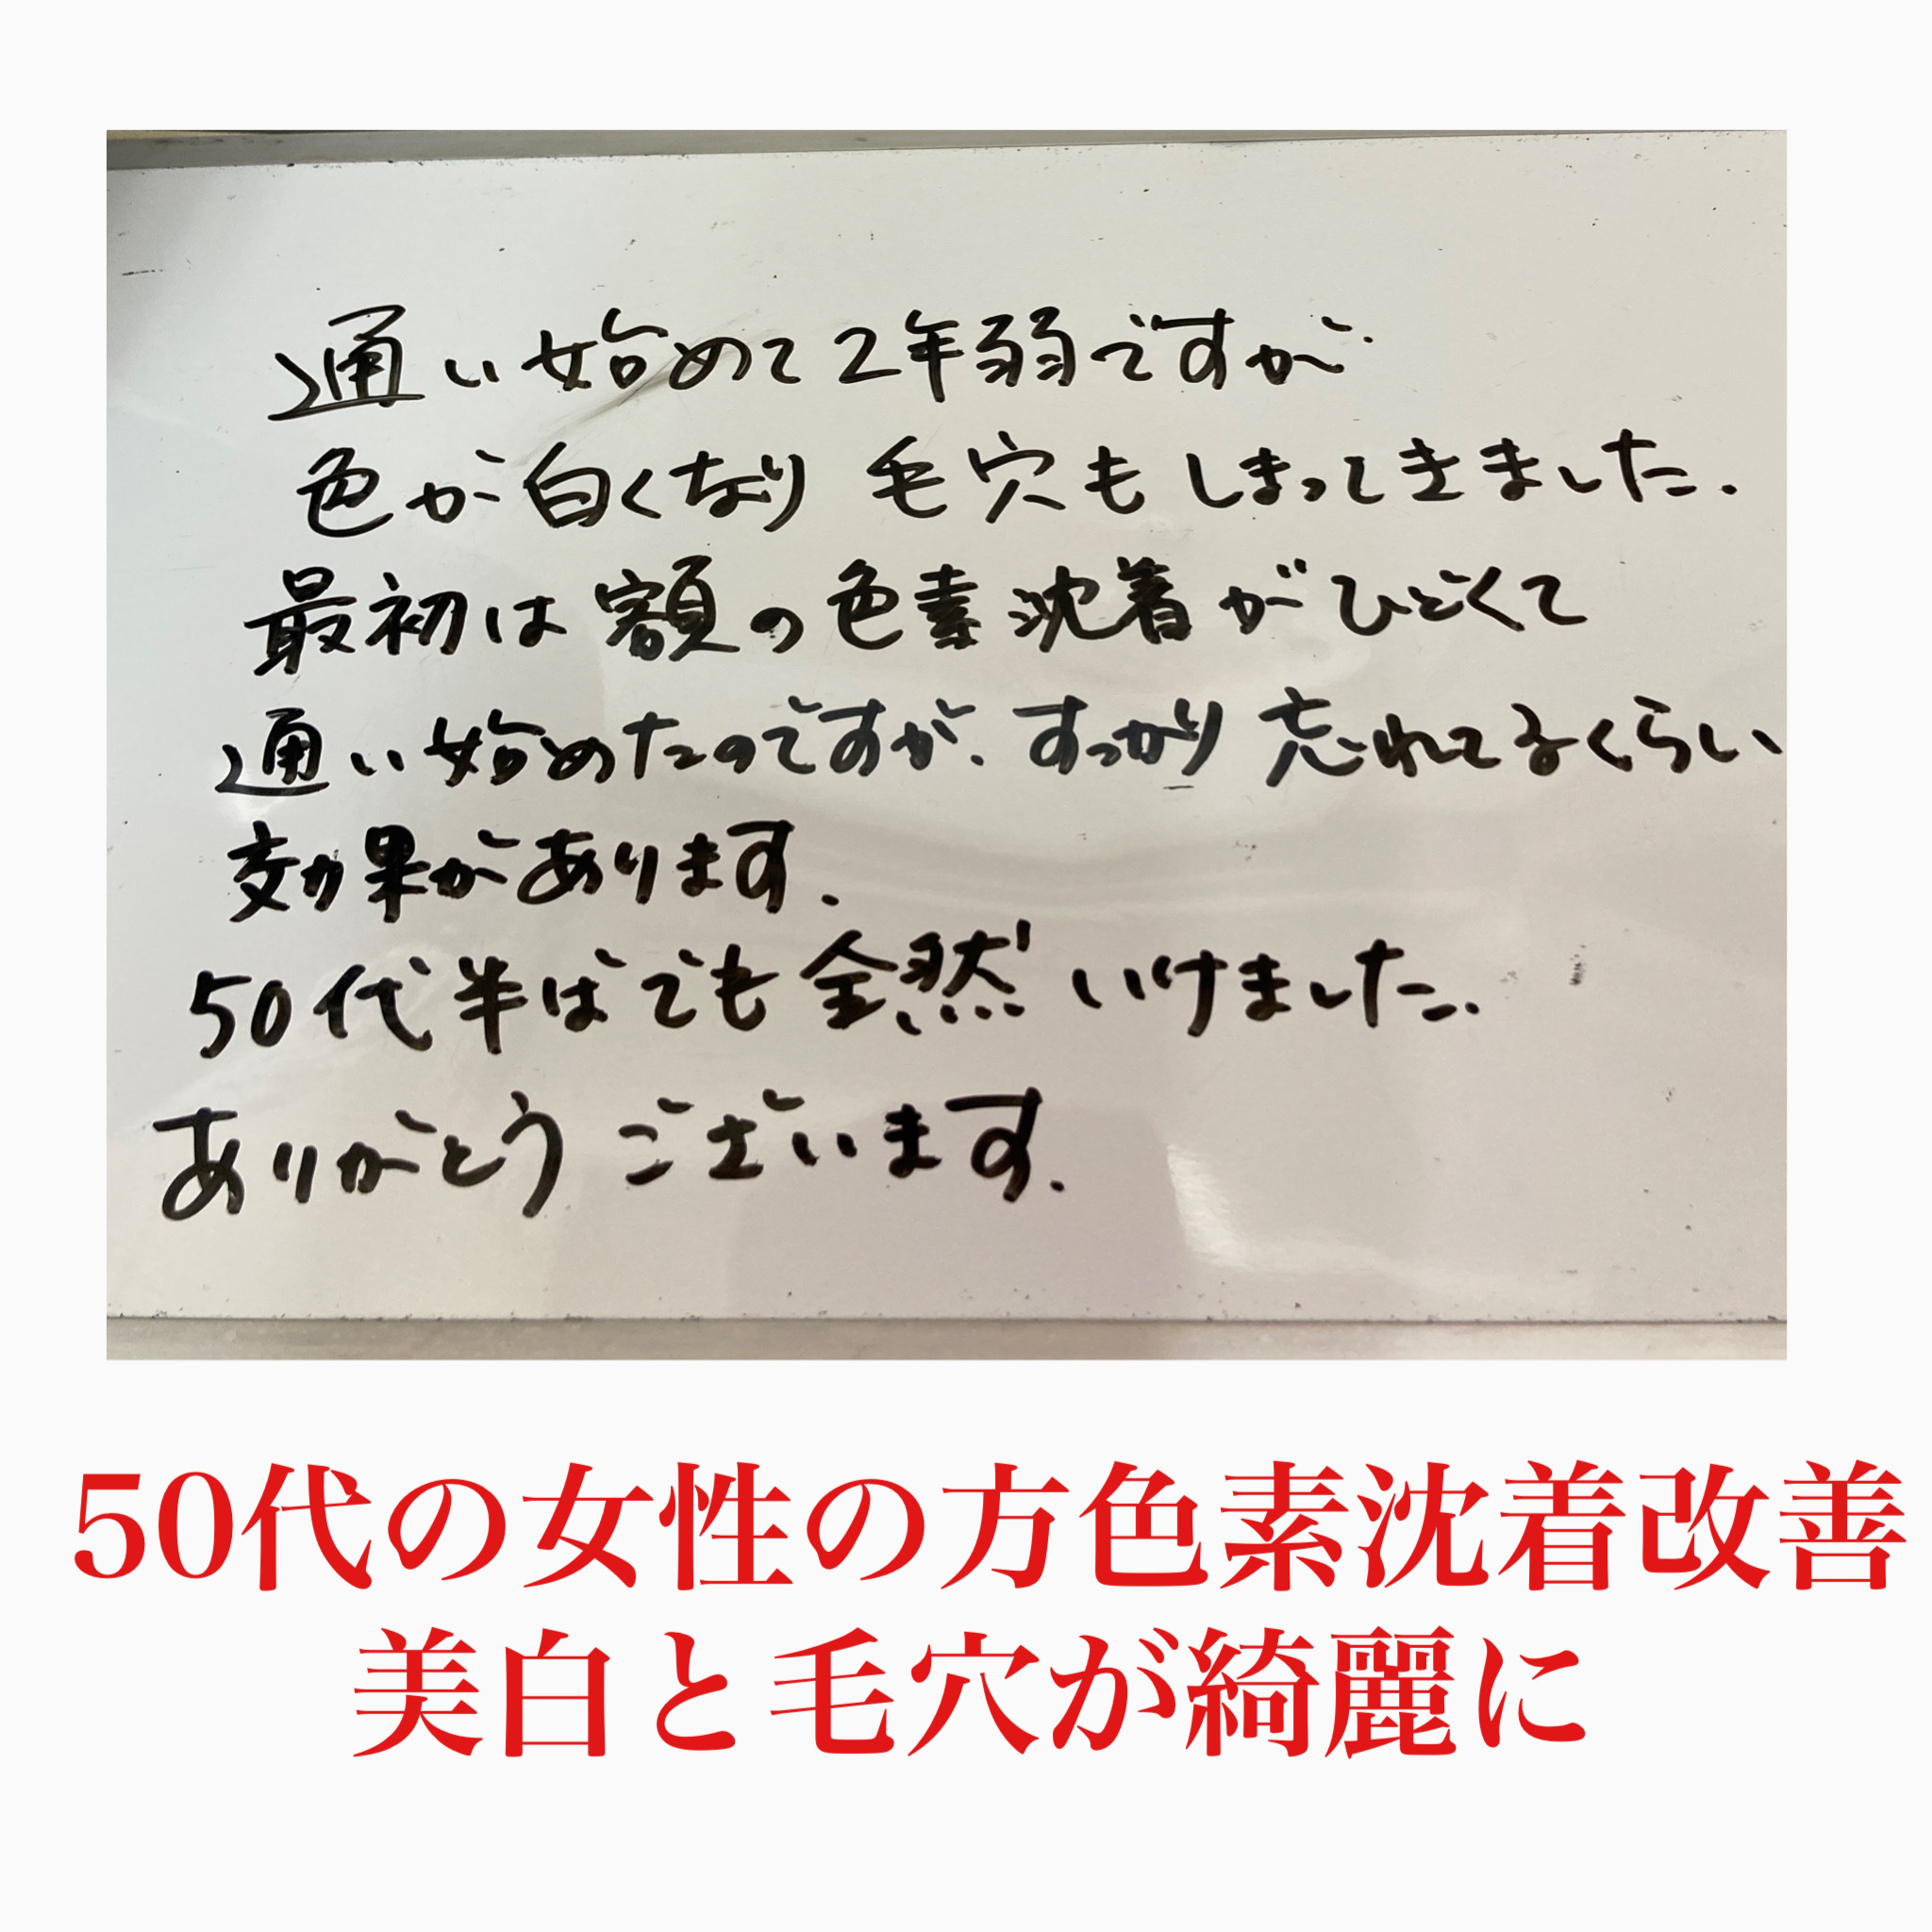 通い始めて2年弱ですが
色が白くなり 毛穴もしまってきました.
最初は額の色素沈着がひどくて
通い始めたのですが、すっかり忘れてるくらい
効果があります.
50代半ばでも全然いけました.
ありがとうございます.
50代の女性の方色素沈着改善
美白と毛穴が綺麗に